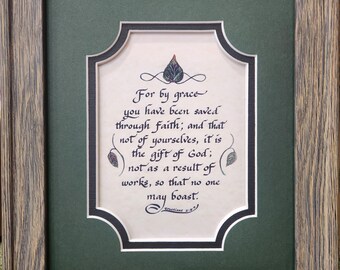 For by grace
you have been saved
through faith; and that
not of yourselves, it is
the gift of God;
not as a result of
works, so that no one
may boast.